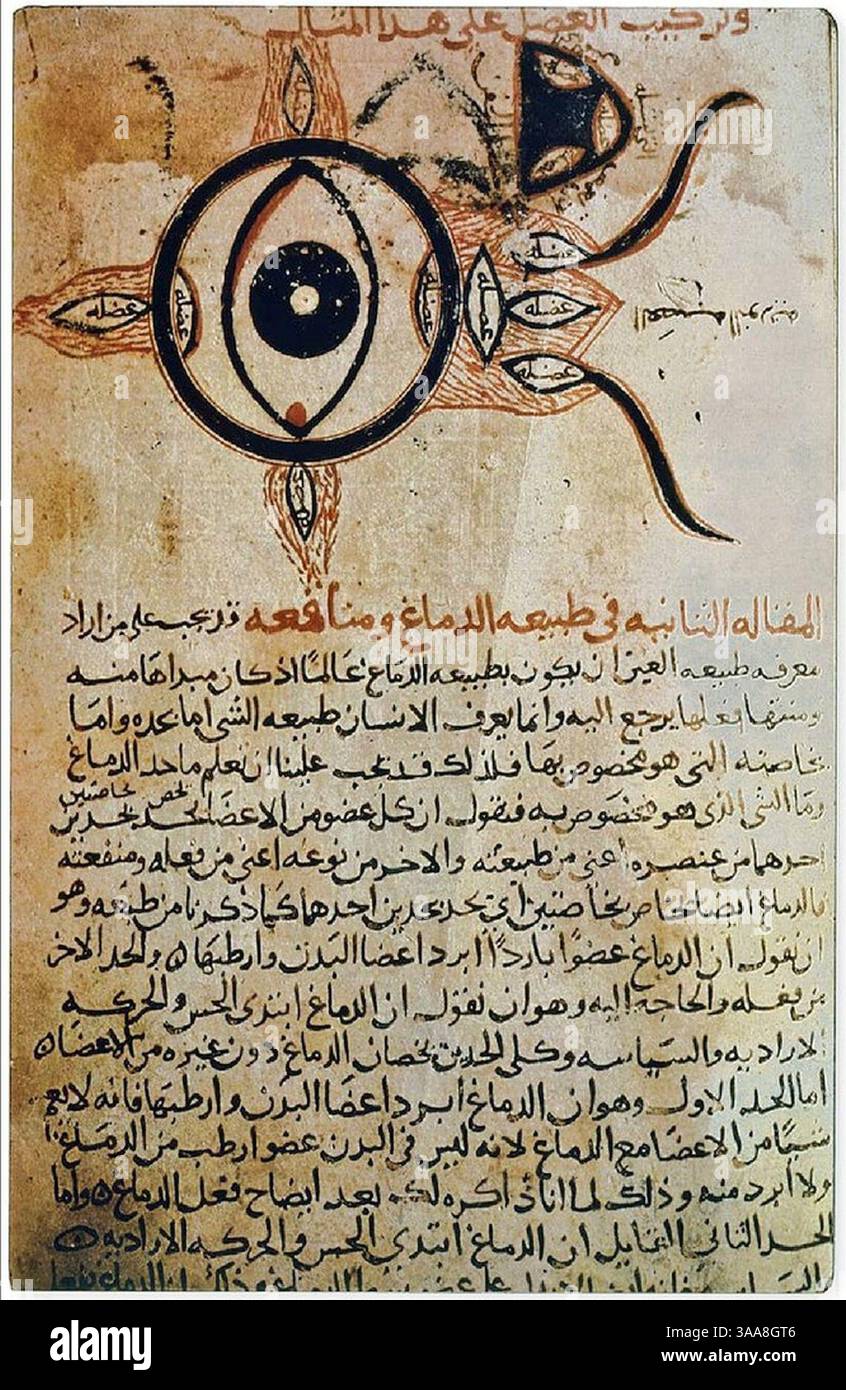 وتركيب العضل على هذا المثال
عضله
عضله
عضله
عضله
عضله
عضله
عضله
عضله
المقاله الثانيه في طبيعه الدماغ ومنافعه قد يجب على من اراد
معرفه طبيعه العين ان يكون بطبيعه الدماغ عالمًا اذ كان مبداها منه
ومنتها فعلها يرجع اليه وانما يعرف الانسان طبيعه الشي اما بحده واما
بخاصته التي هو مخصوص بها فلذلك قد يجب علينا ان نعلم ما حد الدماغ
وما الشي الذي هو مخصوص به فنقول ان كل عضو من الاعضا يحد بحدين
يخص بخاصتين
احدهما من عنصره اعني من طبيعته والاخر من نوعه اعني من فعله ومنفعته
فالدماغ ايضا يختص بخاصتين اي يحد بحدين احدهما كما ذكرنا من طبعه وهو
ان نقول ان الدماغ عضوًا باردًا ابرد اعضا البدن وارطبها والحد الاخر
من فعله والحاجه اليه وهو ان نقول ان الدماغ ابتدى الحس والحركه
الاراديه والسياسه وكلى الحدين يخصان الدماغ دون غيره من الاعضا
اما الحد الاول وهو ان الدماغ ابرد اعضا البدن وارطبها فانه لا يعم
شيًا من الاعضا مع الدماغ لانه ليس في البدن عضو ارطب من الدماغ
ولا ابرد منه وذلك لما انا ذاكره لك بعد ايضاح فعل الدماغ واما
الحد الثاني القايل ان الدماغ ابتدى الحس والحركه الاراديه
alamy
Image ID: 3AA8GT6
www.alamy.com